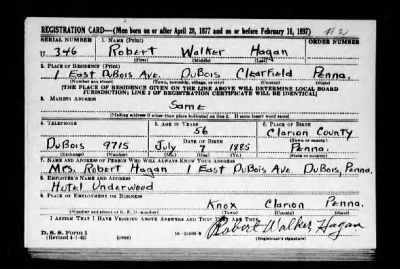 REGISTRATION CARD—(Men born on or after April 28, 1877 and on or before February 16, 1897)
SERIAL NUMBER 1. NAME (Print) ORDER NUMBER
U 346 Robert Walker Hagan
(First) (Middle) (Last)
2. PLACE OF RESIDENCE (Print)
1 East DuBois Ave. DuBois Clearfield Penna.
(Number and street) (Town, township, village, or city) (County) (State)
[THE PLACE OF RESIDENCE GIVEN ON THE LINE ABOVE WILL DETERMINE LOCAL BOARD
JURISDICTION; LINE 2 OF REGISTRATION CERTIFICATE WILL BE IDENTICAL]
3. MAILING ADDRESS
Same
[Mailing address if other than place indicated on line 2. If same insert word same]
4. TELEPHONE 5. AGE IN YEARS 6. PLACE OF BIRTH
56 Clarion County
DATE OF BIRTH (Town or county)
DuBois 9715 July 7 1885 Penna.
(Exchange) (Number) (Mo.) (Day) (Yr.) (State or country)
7. NAME AND ADDRESS OF PERSON WHO WILL ALWAYS KNOW YOUR ADDRESS
Mrs. Robert Hagan 1 East DuBois Ave. DuBois, Penna.
8. EMPLOYER'S NAME AND ADDRESS
Hotel Underwood
9. PLACE OF EMPLOYMENT OR BUSINESS
Knox Clarion Penna.
(Number and street or R. F. D. number) (Town) (County) (State)
I AFFIRM THAT I HAVE VERIFIED ABOVE ANSWERS AND THAT THEY ARE TRUE.
D. S. S. Form 1
(Revised 4-1-42) (over)
Robert Walker Hagan
(Registrant's signature)